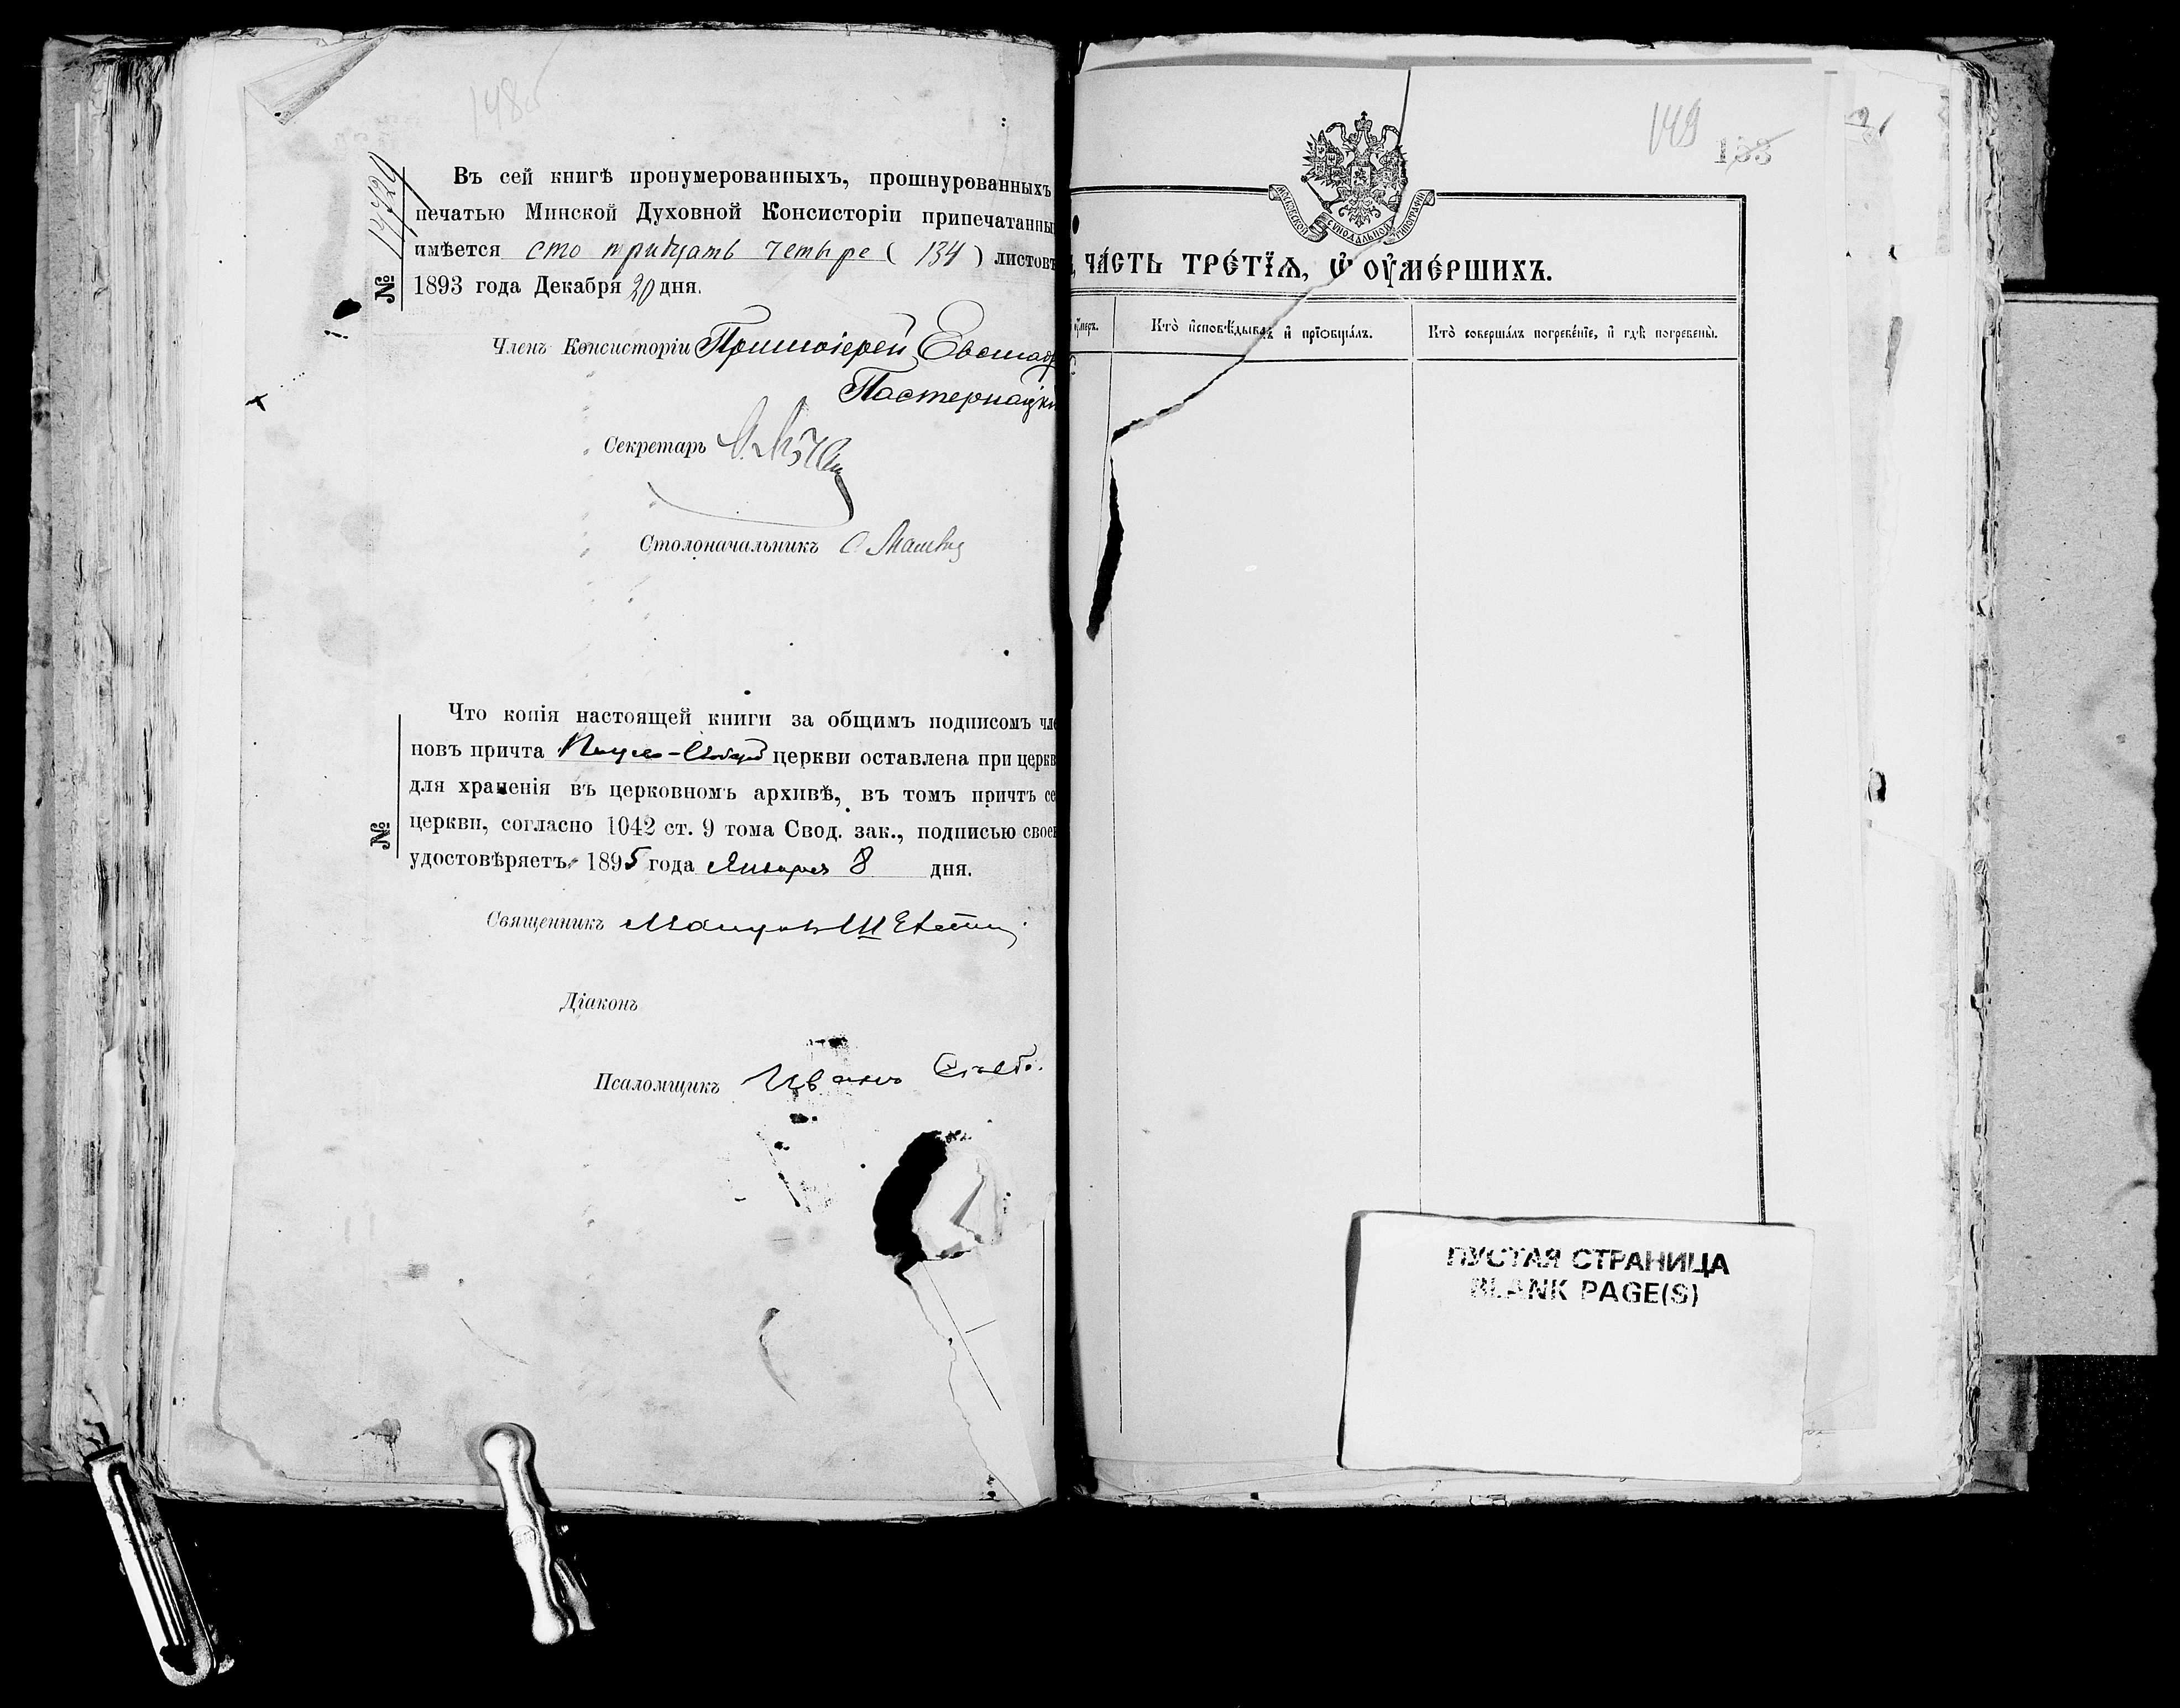 148об
Въ сей книгѣ пронумерованныхъ, прошнурованныхъ
печатью Минской Духовной Консисторіи припечатанны
имѣется сто тридцать четыре ( 134 ) листовъ
1893 года Декабря 20 дня.
№
Членъ Консисторіи Протоіерей Евстаф
Пастернацкі
Секретарь
Столоначальникъ С.
Что копія настоящей книги за общимъ подписомъ чле
новъ причта церкви оставлена при церкв
для храненія въ церковномъ архивѣ, въ томъ причтъ се
церкви, согласно 1042 ст. 9 тома Свод. зак., подписью своею
удостовѣряетъ 1895 года Января 8 дня.
№
Священникъ
Діаконъ
Псаломщикъ Иванъ
149
153
МОСКОВСКОЙ СѴНОДАЛЬНОЙ ТИПОГРАФІИ
ЧА́СТЬ ТРЕ́ТЇѦ, Ѡ҆ ОУ҆МЕ́РШИХЪ.
Кто̀ и҆сповѣ́дывалъ и҆ прїѡбща́лъ.
Кто̀ соверша́лъ погребе́нїе, и҆ гдѣ̀ погребены̀.
ПУСТАЯ СТРАНИЦА
BLANK PAGE(S)